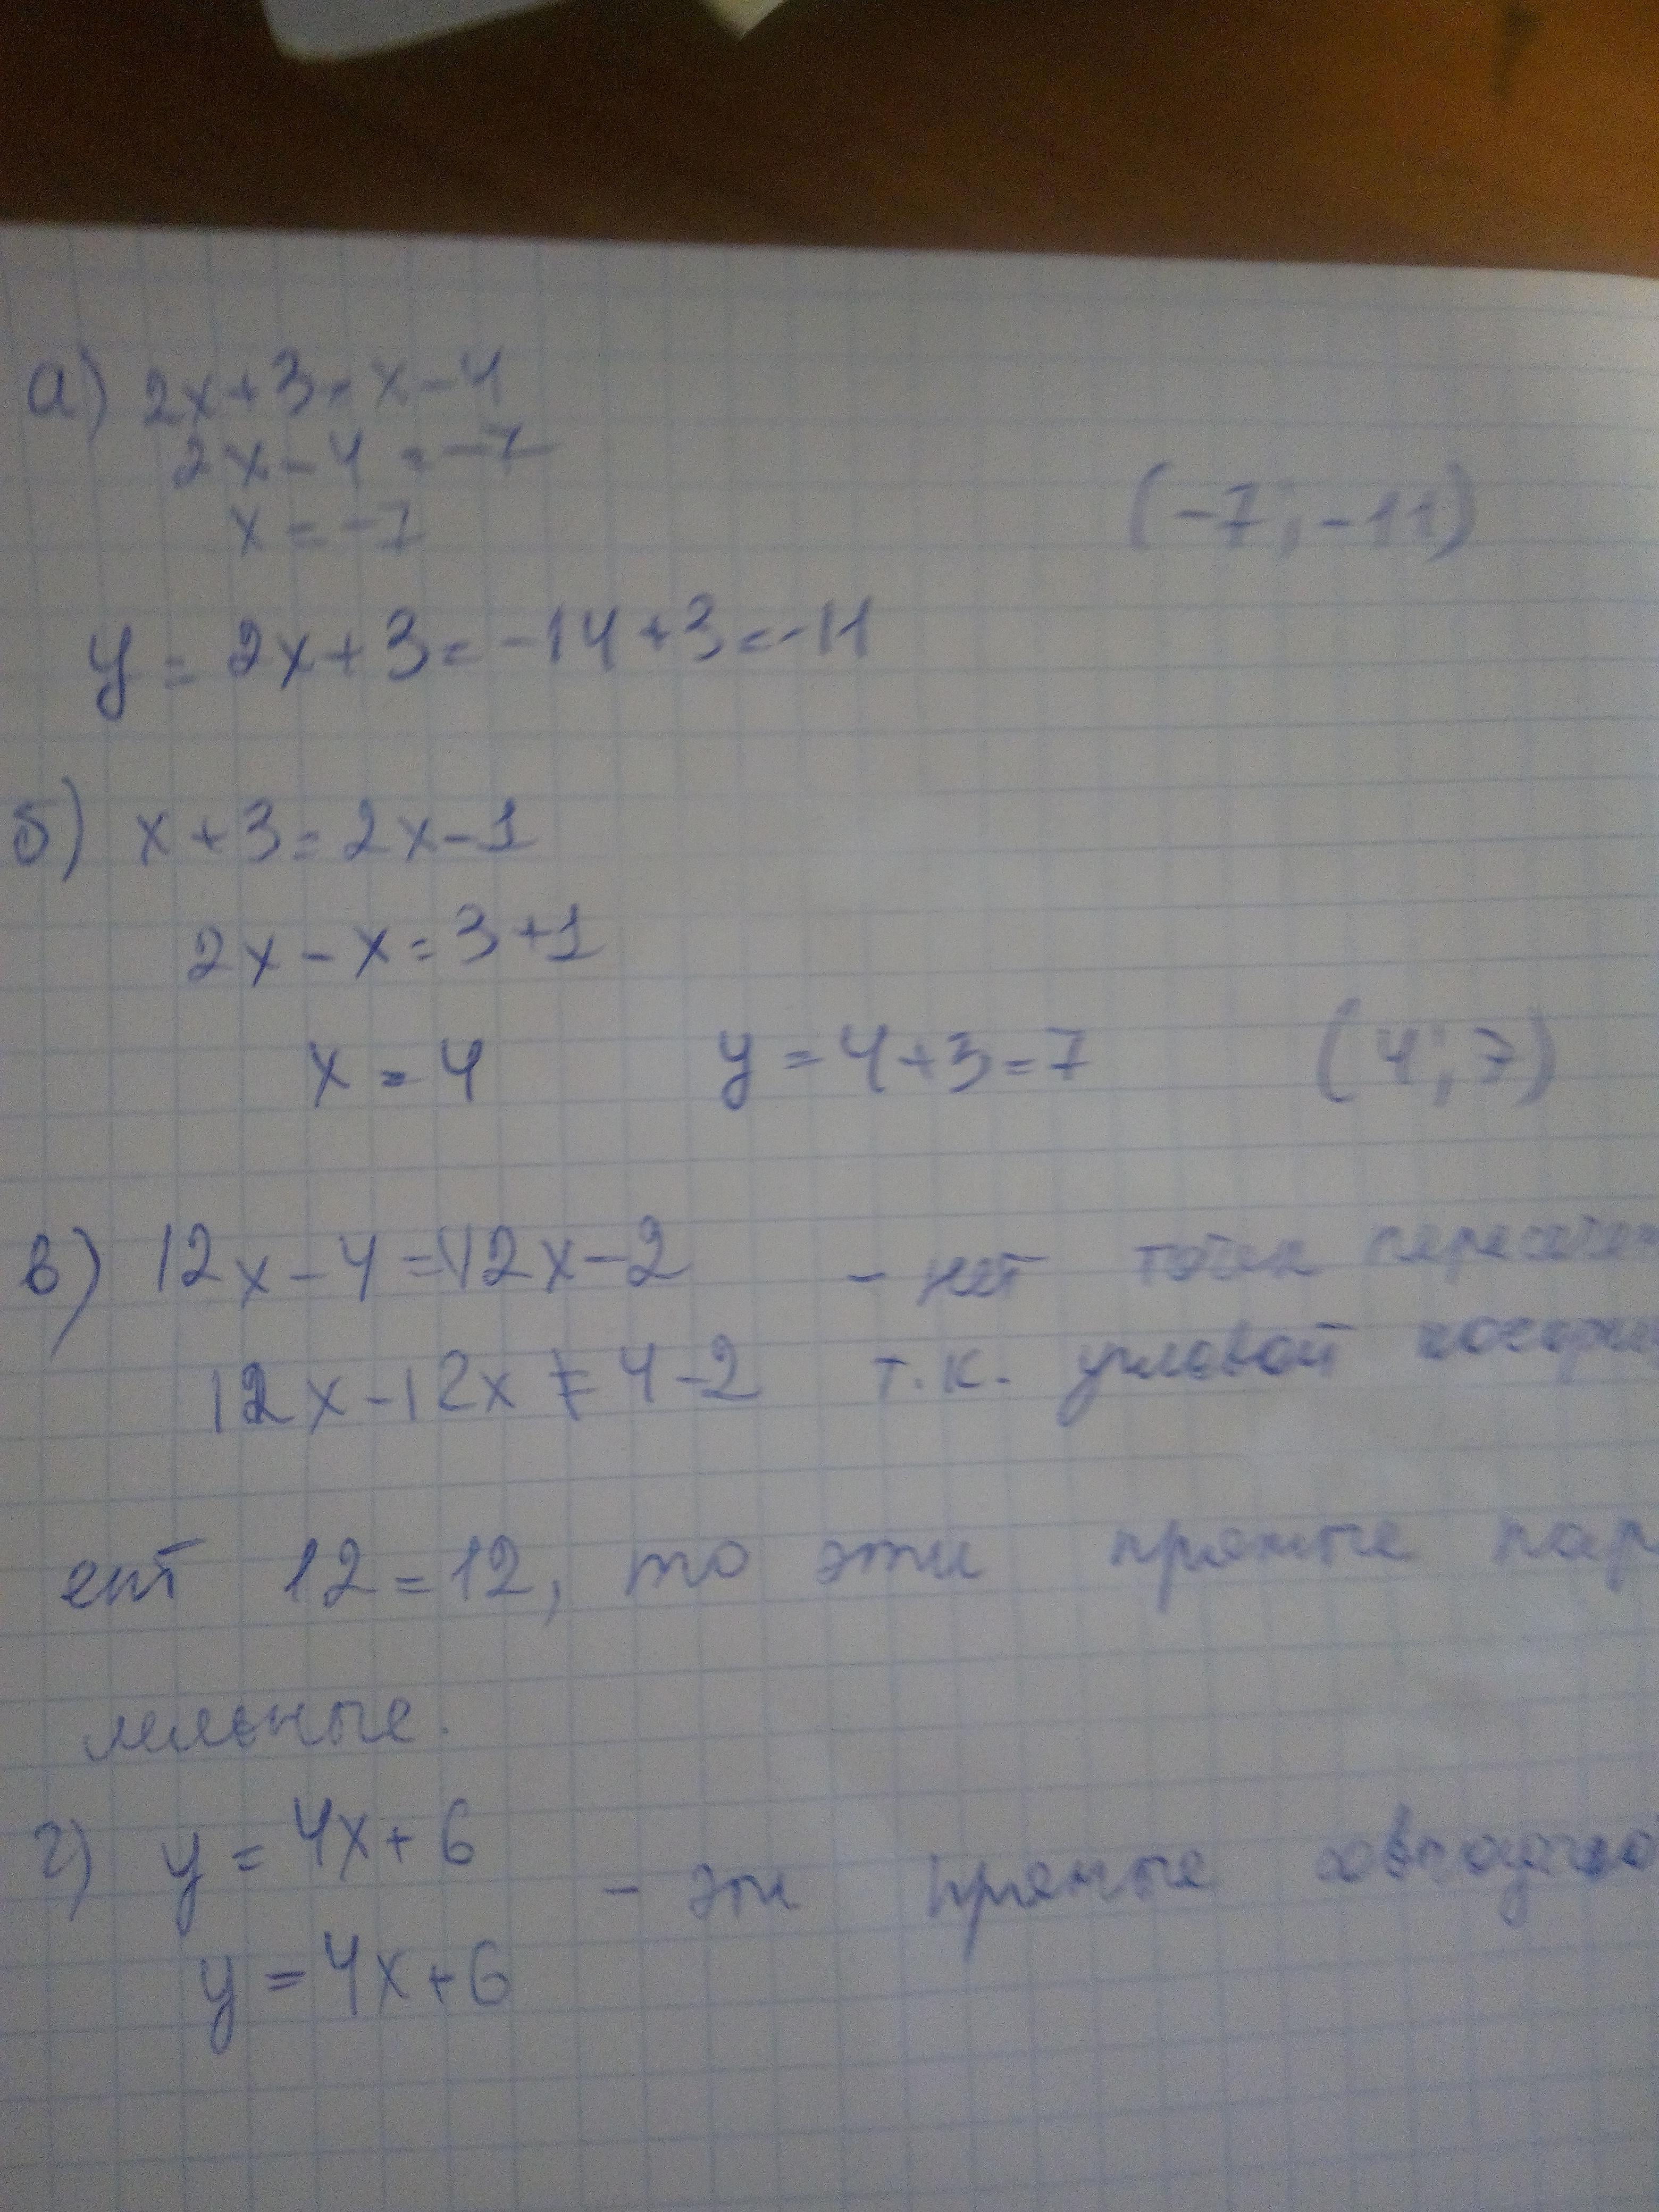 а) 2x+3=x-4
2x-4=-7
x=-7
(-7;-11)
y=2x+3=-14+3=-11
б) x+3=2x-1
2x-x=3+1
x=4 y=4+3=7 (4;7)
в) 12x-4=12x-2 - нет точек пересечен
12x-12x≠4-2 т.к. угловой
ент 12=12, то эти прямые пар
лельные.
г) y=4x+6
- эти прямые совпадаю
y=4x+6